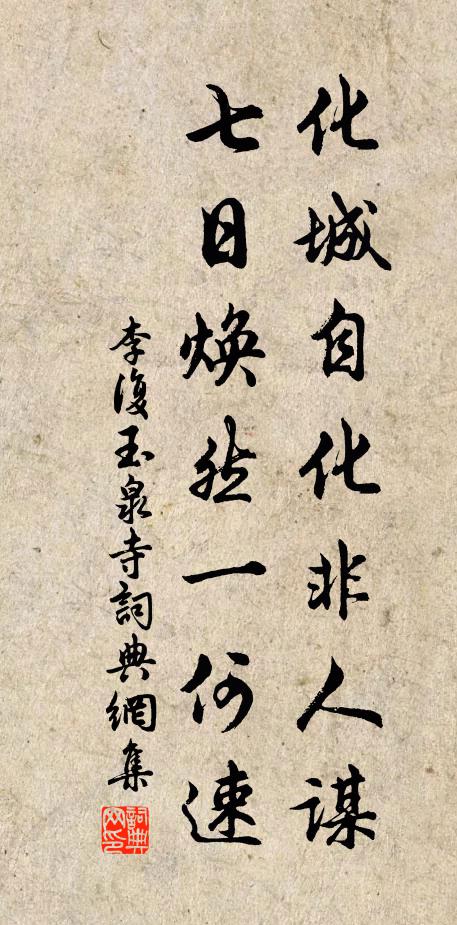 化城自化非人謀
七日煥然一何速
李復玉泉寺詞典網集
詞典網印